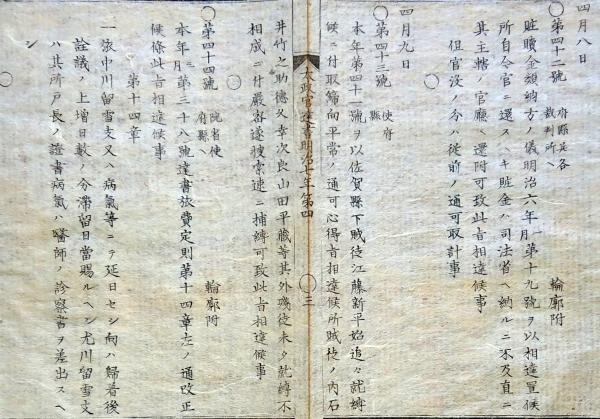 四月八日
〇第四十二號 府縣並各裁判所ヘ 輪廓附
贓贖金額納方ノ儀明治六年一月第十九號ヲ以相達置候
所自今官ニ還スヘキ贓金ハ司法省ヘ納ルニ不及直ニ
其主轄ノ官廳ヘ還附可致此旨相達候事
但官沒ノ分ハ從前ノ通可取計事
四月九日
〇第四十三號 使府縣
本年第四十一號ヲ以佐賀縣下賊徒江藤新平始追々就縛
候ニ付取締向平常ノ通可心得旨相達候所賊徒ノ内石
太政官達書明治七年第四
三
井竹之助德久幸次良山田平藏等其外殘徒未タ就縛不
相成ニ付嚴密遂搜索速ニ捕縛可致此旨相達候事
〇第四十四號 院省使府縣ヘ 輪廓附
本年二月第三十八號達書旅費定則第十四章左ノ通改正
候條此旨相達候事
第十四章
一依中川留雪支又ハ病氣等ニテ延日セシ向ハ歸着後
詮議ノ上增日數ノ分滯留日當賜ルヘシ尤川留雪支
ハ其所戸長ノ證書病氣ハ醫師ノ診察書ヲ差出スヘ
シ